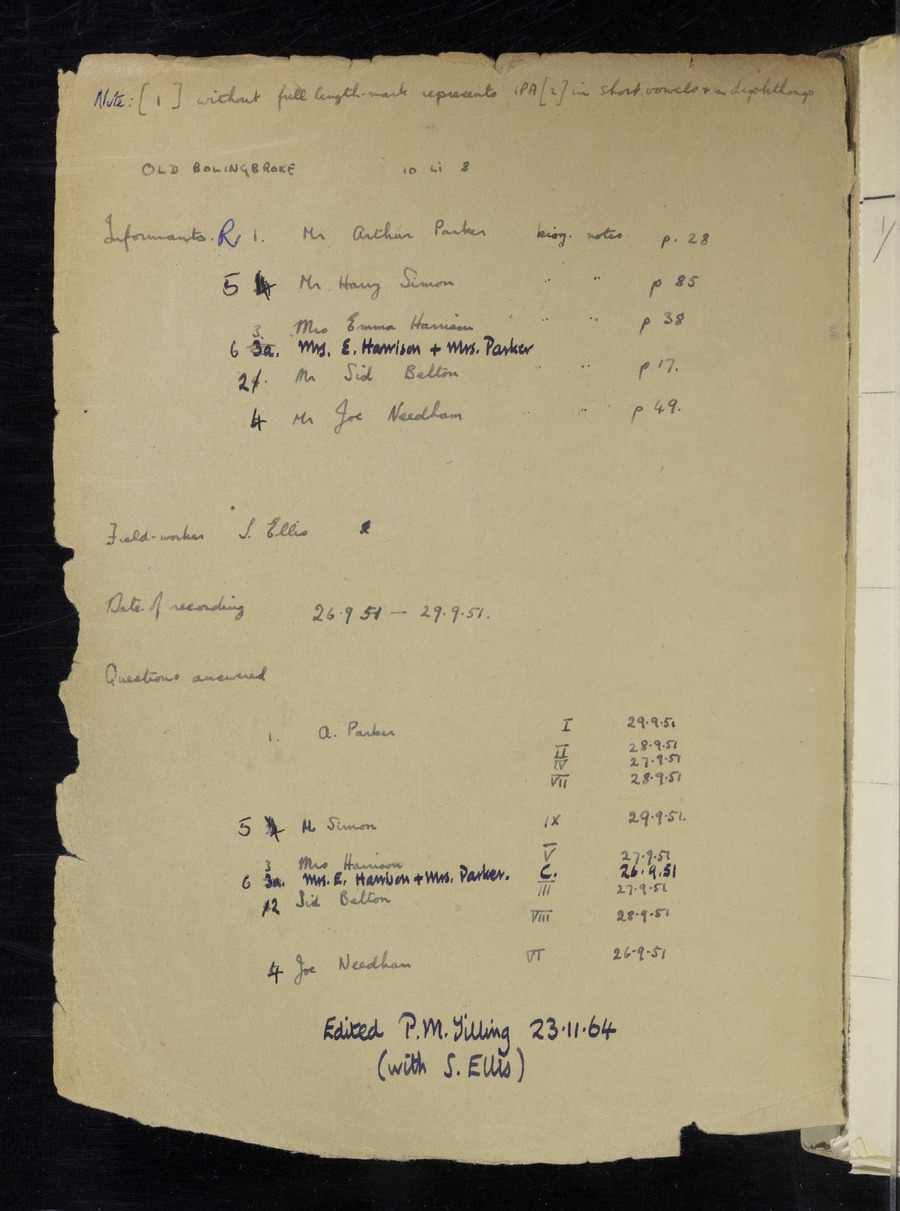 Note: [ ı ] without full length-mark represents IPA [ɪ] in short vowels + in diphthongs
OLD BOLINGBROKE 10 Li 8
Informants. R 1. Mr Arthur Parker biog. notes p. 28
5 Mr Harry Simon " " p 85
3. Mrs Emma Harrison " " p 38
6 3a. Mrs. E. Harrison + Mrs. Parker
2 Mr Sid Belton " " p 17.
4 Mr Joe Needham " " p 49.
Field-worker S. Ellis
Date of recording 26.9.51 — 29.9.51.
Questions answered
1. A. Parker I 29.9.51
II 28.9.51
IV 27.9.51
VII 28.9.51
5 H Simon IX 29.9.51.
3 Mrs Harrison V 27.9.51
6 3a. Mrs. E. Harrison + Mrs. Parker. C. 26.9.51
III 27.9.51
2 Sid Belton
VIII 28.9.51
4 Joe Needham VI 26-9-51
Edited P.M. Tilling 23.11.64
(with S. Ellis)